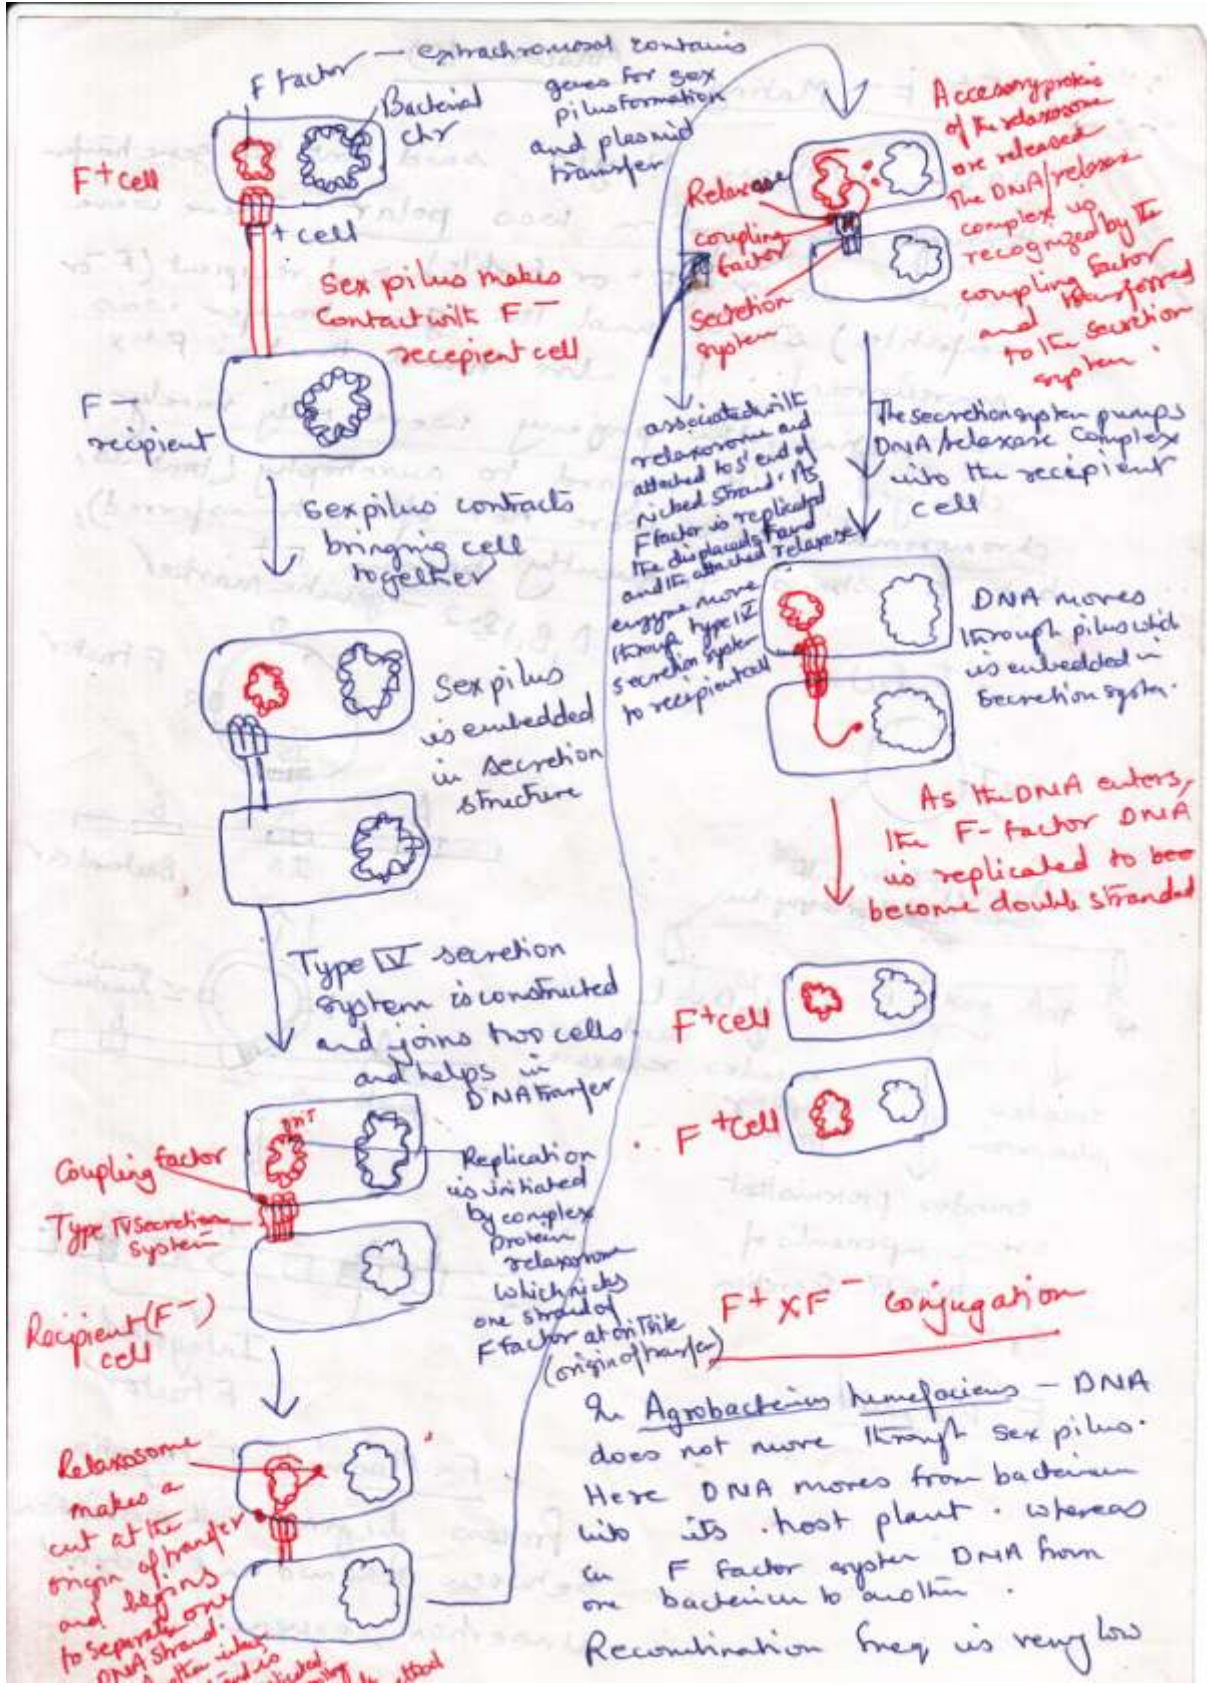 F factor — extrachromosal contains
genes for sex
pilus formation
and plasmid
transfer
Bacterial
chr
F+ cell
F+ cell
Sex pilus makes
Contact with F−
recepient cell
F−
recipient
sex pilus contracts
bringing cell
together
Sex pilus
is embedded
in secretion
structure
Type IV secretion
system is constructed
and joins two cells.
and helps in
DNA Tranfer
oriT
Coupling factor
Type IV secretion
system
Recipient (F−)
cell
Replication
is initiated
by complex
protein
relaxosome
which nicks
one strand of
F factor at oriT site
(origin of transfer)
Relaxosome
makes a
cut at the
origin of transfer
and begins
to separate one
DNA strand.
Accesory proteins
of the relaxosome
are released
The DNA/relaxase
complex is
recognized by the
coupling factor
and transferred
to the secretion
system.
Relaxase
coupling
factor
Secretion
system
associated with
relaxosome and
attached to 5' end of
nicked strand. As
F factor is replicated
the displaced strand
and the attached relaxase
enzyme move
through type IV
secretion system
to recepient cell
The secretion system pumps
DNA/relaxase Complex
into the recipient
cell
DNA moves
through pilus which
is embedded in
Secretion system.
As the DNA enters,
the F-factor DNA
is replicated to bee
become double stranded
F+ cell
F+ cell
F+ X F− Conjugation
In Agrobacterium tumefaciens — DNA
does not move through sex pilus.
Here DNA moves from bacterium
into its host plant. whereas
in F factor system DNA from
one bacterium to another.
Recombination freq is very low